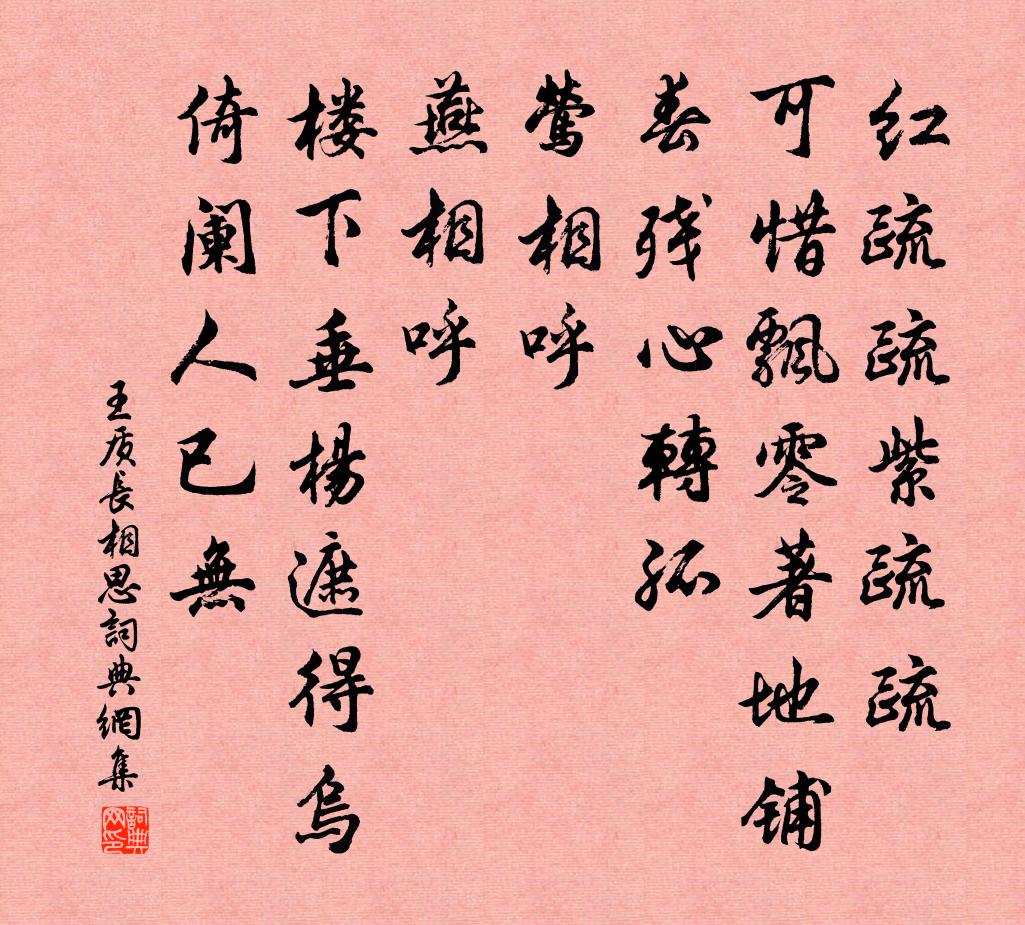 红疏疏紫疏疏
可惜飘零著地铺
春残心轉孤
莺相呼
燕相呼
楼下垂楊遮得烏
倚阑人已無
王质長相思詞典網集
詞典网印